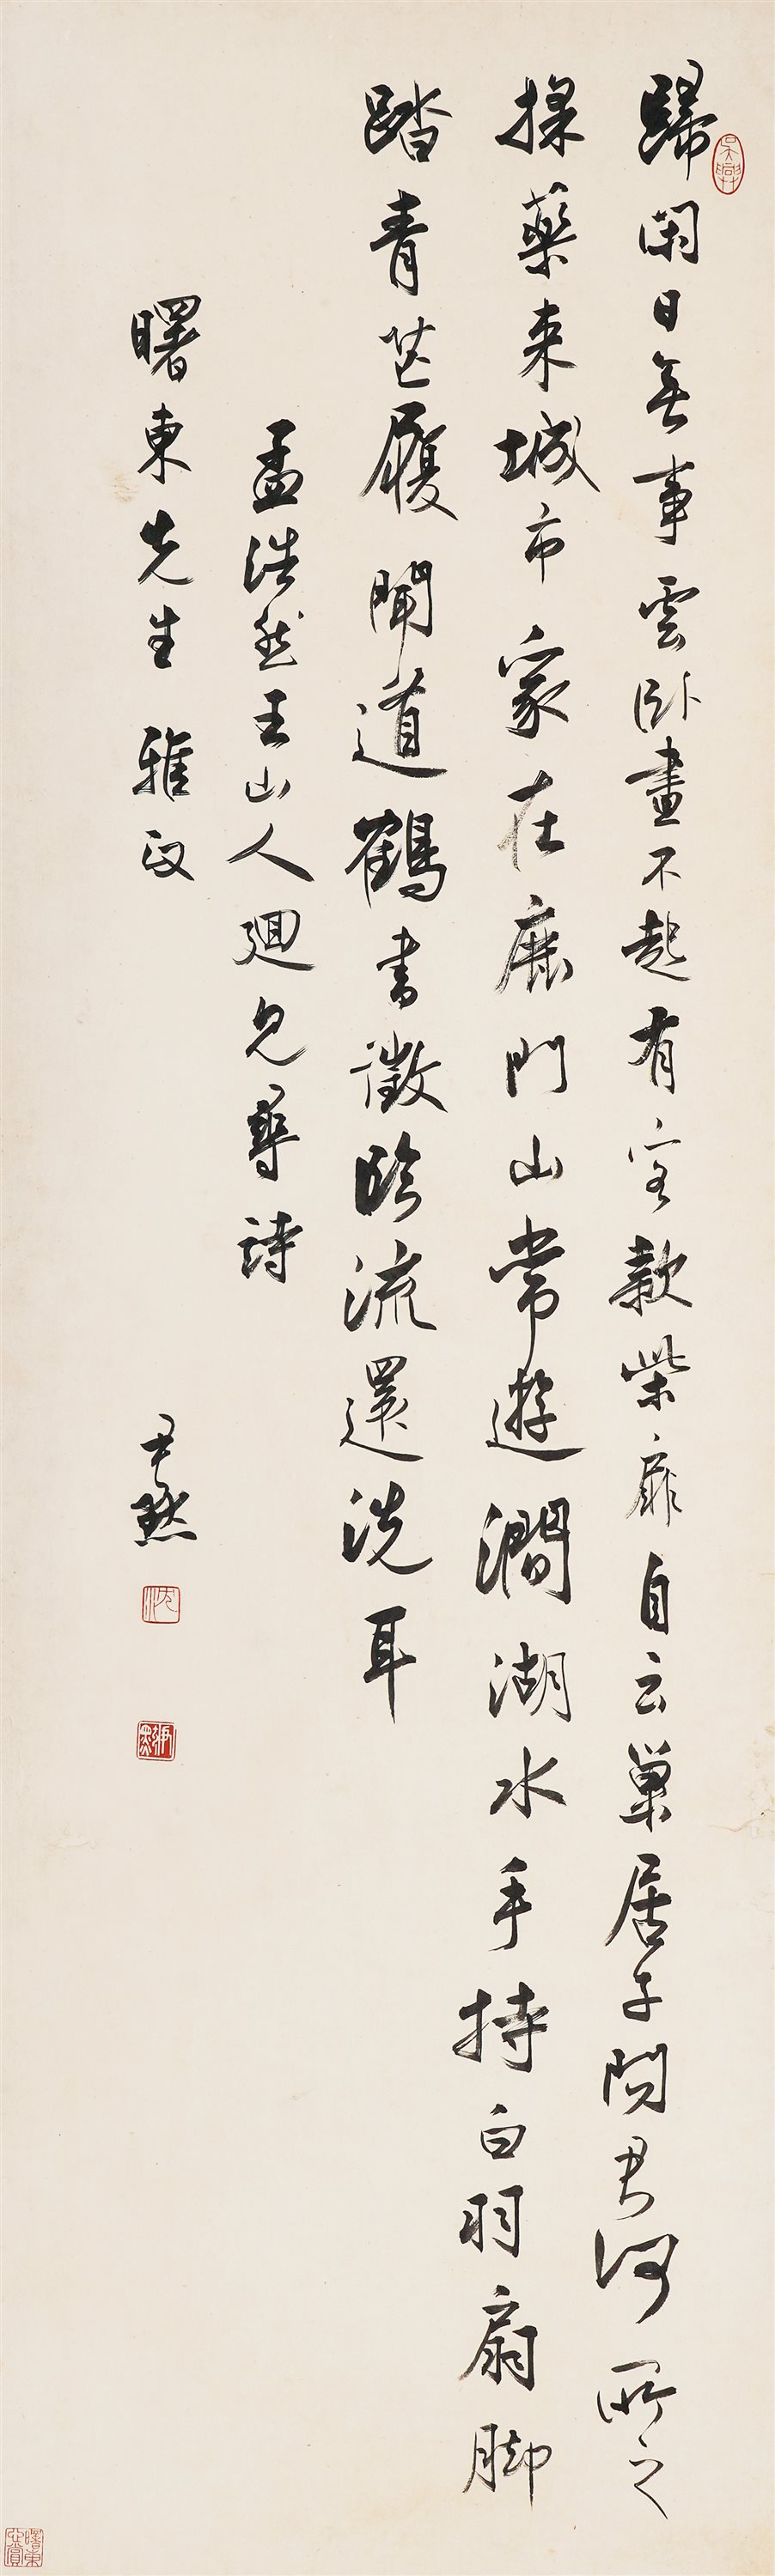 歸閑日無事雲卧晝不起有客款柴扉自云巢居子問君何所之
採藥来城市家在鹿門山常遊澗湖水手持白羽扇脚
踏青芒履聞道鶴書徵臨流還洗耳
孟浩然王山人迴見尋詩
曙東先生雅政
尹默
吳興
沈
尹默
曙東心賞